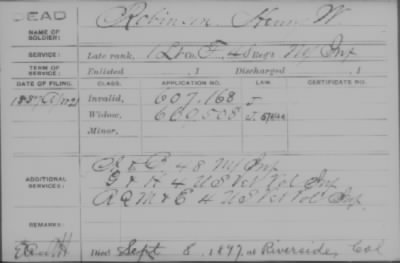 DEAD
Robinson Henry W.
NAME OF
SOLDIER:
SERVICE: Late rank, F, 4 Regt NY Inf
TERM OF
SERVICE: Enlisted , 1 Discharged , 1
DATE OF FILING. CLASS. APPLICATION NO. LAW. CERTIFICATE NO.
Invalid, 607,168 J
Widow, 660,508 J.
Minor,
ADDITIONAL
SERVICES:
48 NY Inf
G & K 4 US Vet Vol Inf
4 US Vet Vol Inf
REMARKS:
Died Sept 8, 1897, at Riverside, Cal